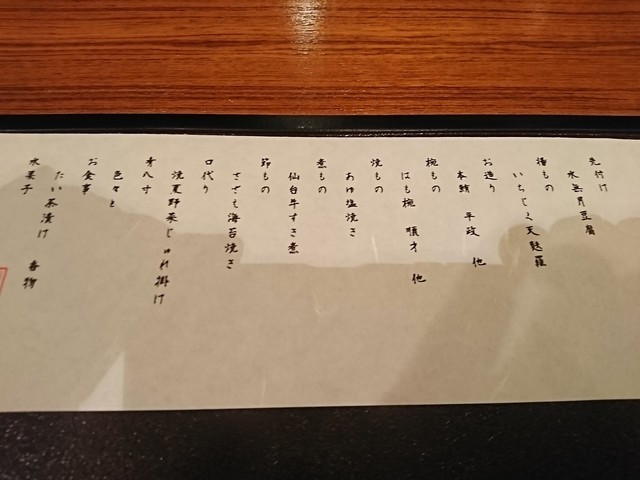 先付け
水無月豆腐
揚もの
いちじく天麩羅
お造り
本鮪 平政 他
椀もの
はも椀 順才 他
焼もの
あゆ塩焼き
煮もの
仙台牛すき煮
節もの
さざえ海苔焼き
口代り
焼夏野菜じゅれ掛け
才八寸
色々と
お食事
たい茶漬け 香物
水菓子